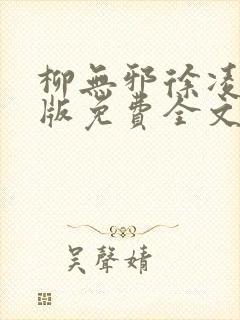 柳無邪徐凌
版免費全文
吴聲婧